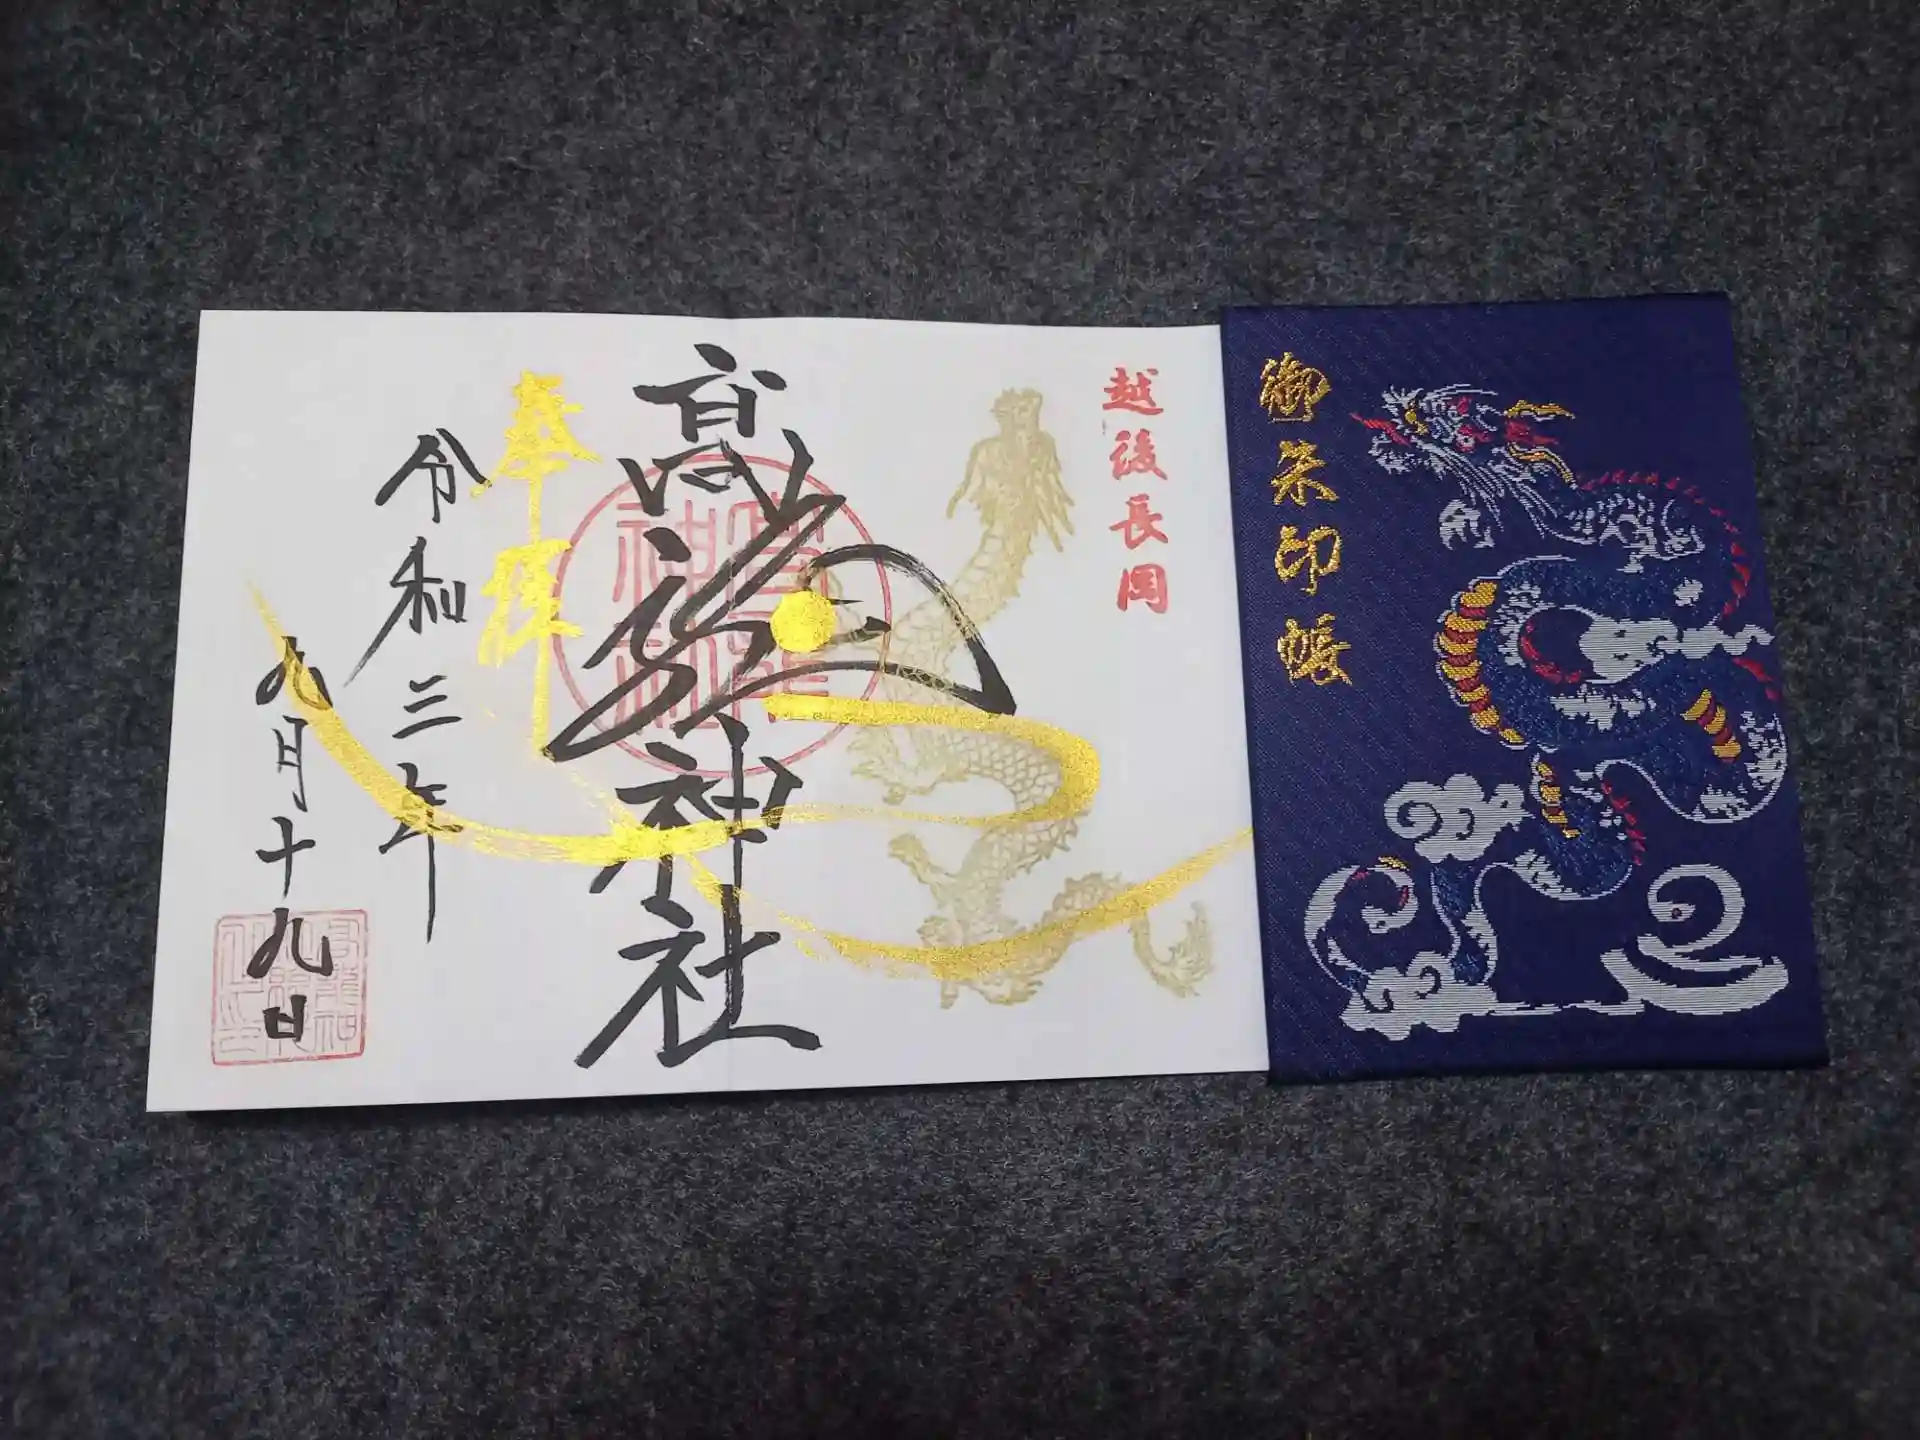 御朱印帳
越後長岡
高龍神社
奉拝
令和三年
九月十九日
高龍
神社